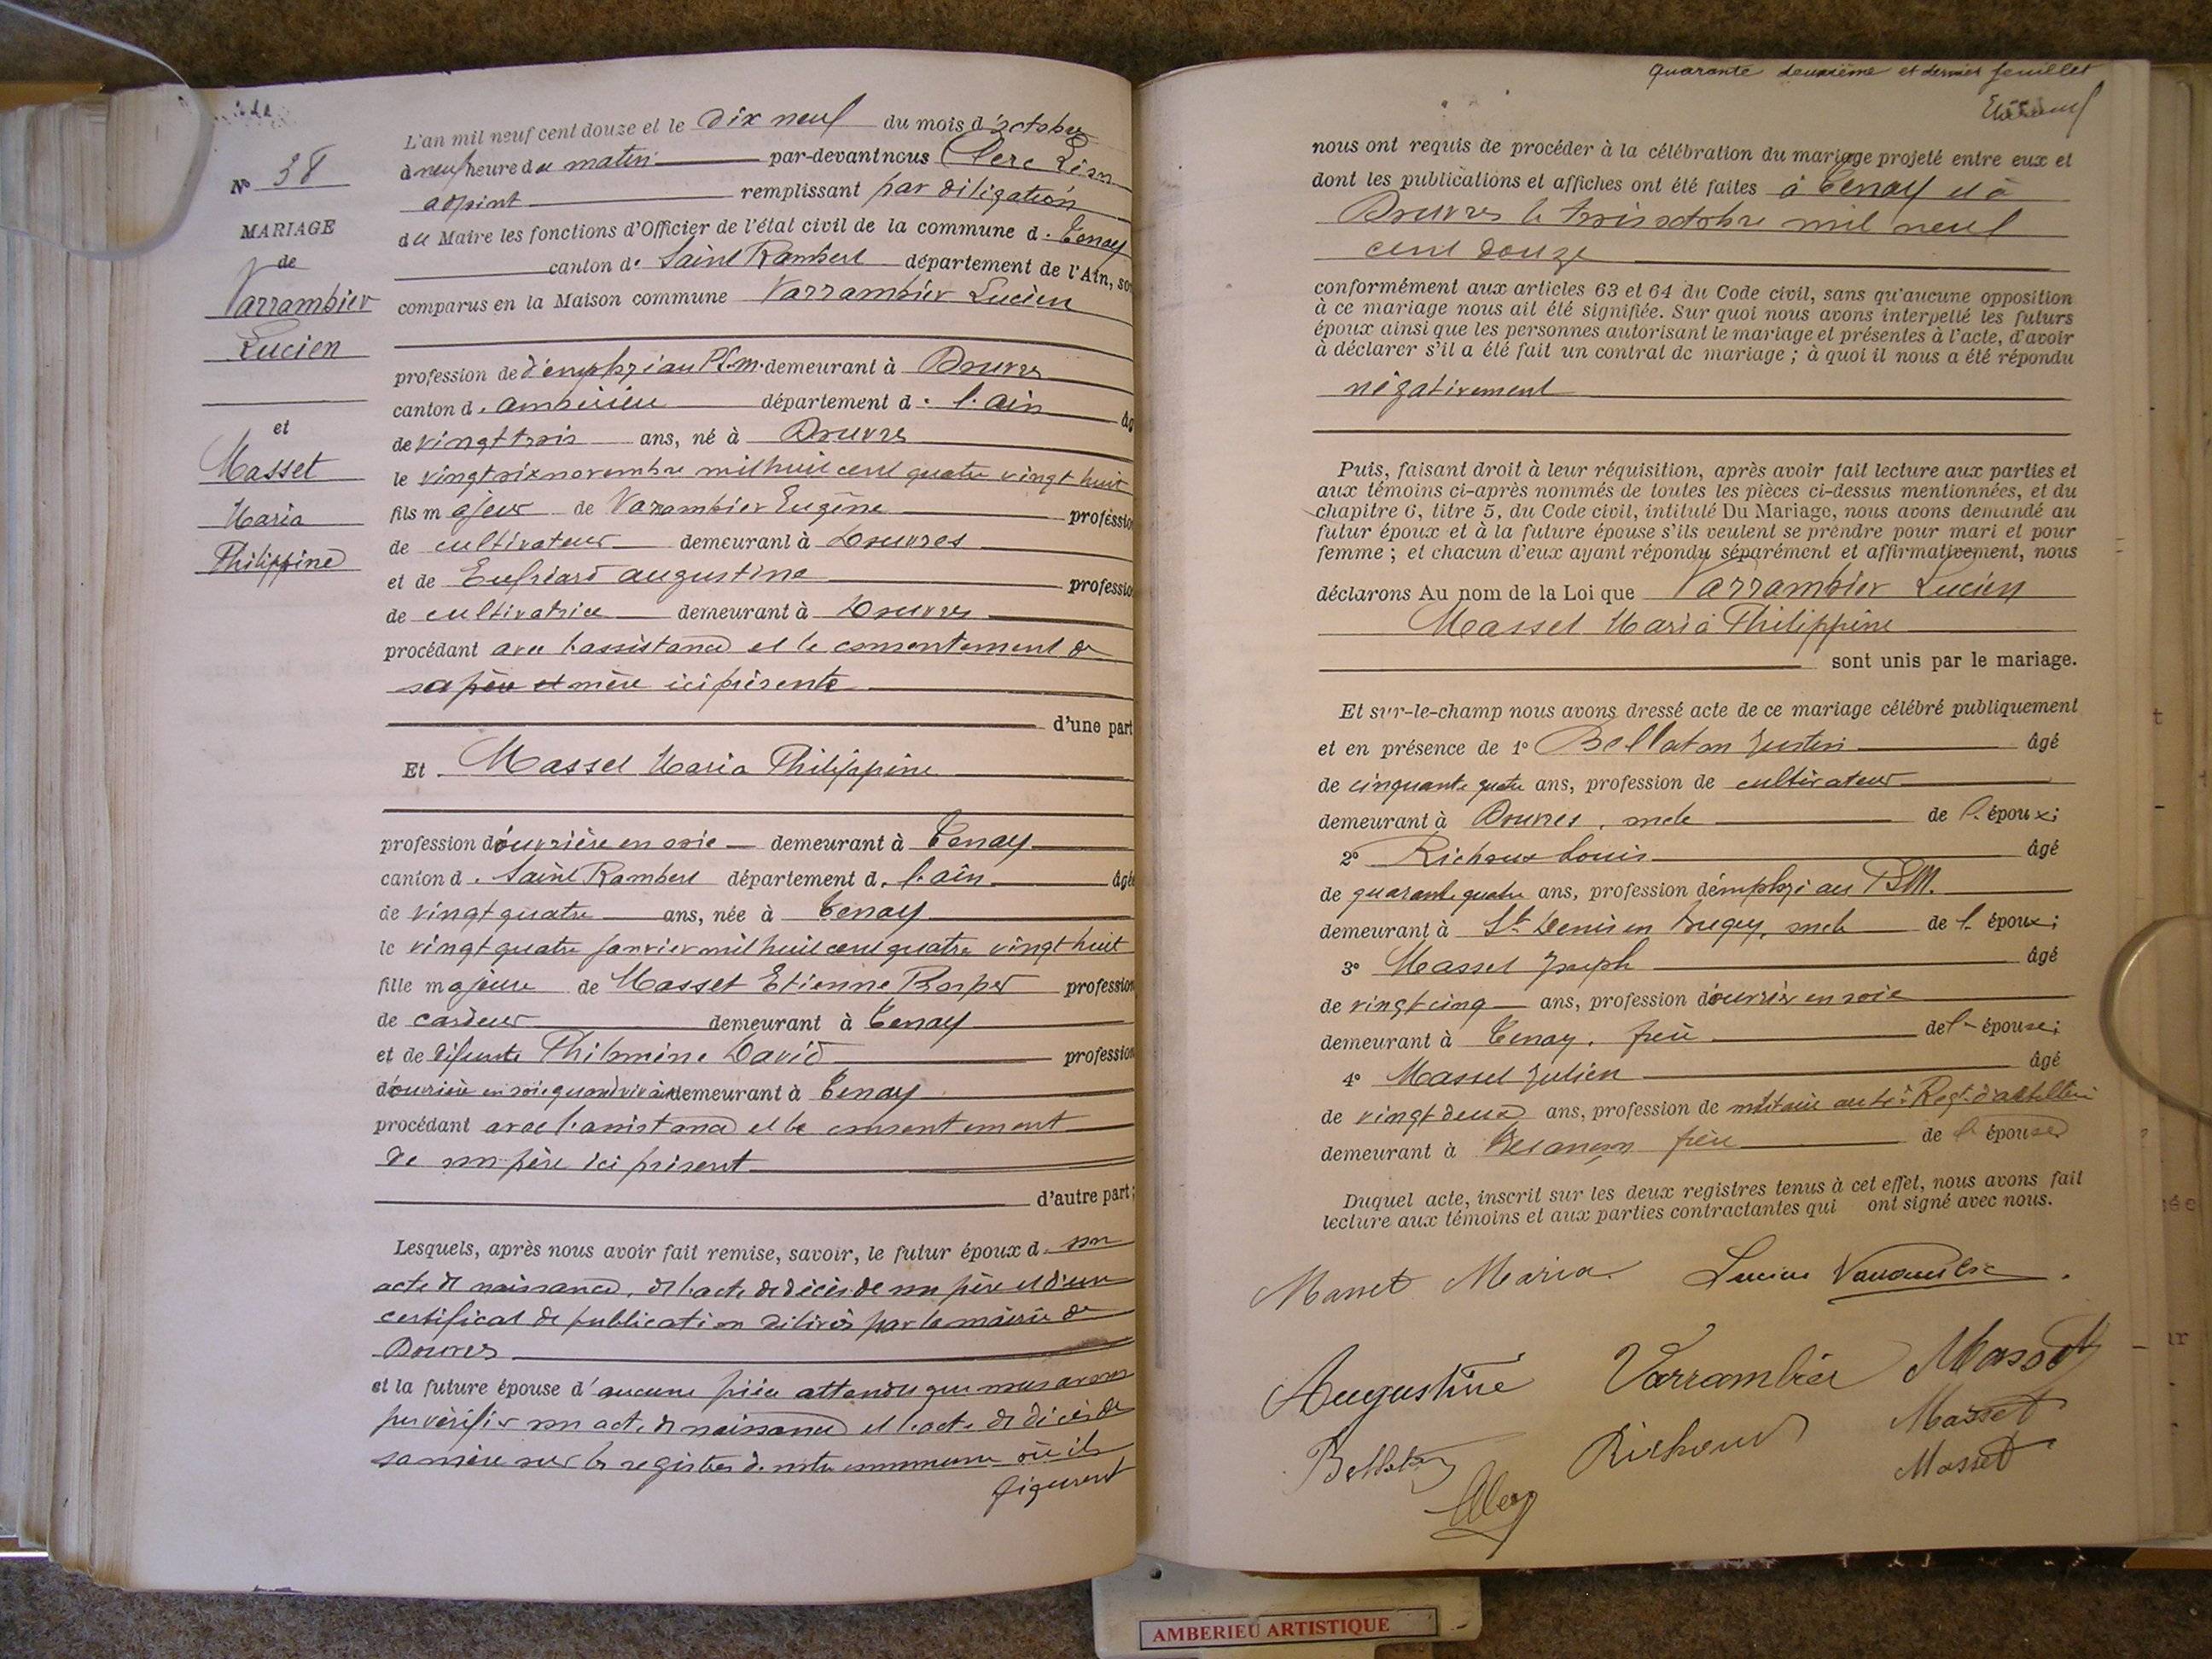 N° 38
MARIAGE
de
Varrambier
Lucien
et
Masset
Maria
Philippine
L'an mil neuf cent douze et le dix neuf du mois d'octobre
à neuf heure du matin par-devant nous Clerc Léon
adjoint remplissant par délégation
du Maire les fonctions d'Officier de l'état civil de la commune de Tenay
canton de Saint Rambert département de l'Ain, so
comparus en la Maison commune Varrambier Lucien
profession de d'employé au P.L.M. demeurant à Douvres
canton d. Ambérieu département d. l'ain âg
de vingt trois ans, né à Douvres
le vingt six novembre mil huit cent quatre vingt huit
fils majeur de Varambier Eugène professio
de cultivateur demeurant à Douvres
et de Augustine professio
de cultivatrice demeurant à Douvres
procédant avec l'assistance et le consentement de
sa père et mère ici présente
d'une part
Et Masset Maria Philippine
profession d'ouvrière en soie demeurant à Tenay
canton d. Saint Rambert département d. l'ain âgé
de vingt quatre ans, née à Tenay
le vingt quatre janvier mil huit cent quatre vingt huit
fille majeure de Masset Etienne Prosper profession
de cardeur demeurant à Tenay
et de défunte Philomène David profession
d'ouvrière en soie quand vivait demeurant à Tenay
procédant avec l'assistance et le consentement
de son père ici présent
d'autre part;
Lesquels, après nous avoir fait remise, savoir, le futur époux d. son
acte de naissance, de l'acte de décès de son père et d'un
certificat de publication délivrés par la mairie de
Douvres
et la future épouse d'aucune pièce attendu que nous avons
pu vérifier son acte de naissance et l'acte de décès de
sa mère sur les registres de notre commune où ils
figurent
Quarante deuxième et dernier feuillet
nous ont requis de procéder à la célébration du mariage projeté entre eux et
dont les publications et affiches ont été faites à Tenay et à
Douvres le trois octobre mil neuf
cent douze
conformément aux articles 63 et 64 du Code civil, sans qu'aucune opposition
à ce mariage nous ait été signifiée. Sur quoi nous avons interpellé les futurs
époux ainsi que les personnes autorisant le mariage et présentes à l'acte, d'avoir
à déclarer s'il a été fait un contrat de mariage ; à quoi il nous a été répondu
négativement
Puis, faisant droit à leur réquisition, après avoir fait lecture aux parties et
aux témoins ci-après nommés de toutes les pièces ci-dessus mentionnées, et du
chapitre 6, titre 5, du Code civil, intitulé Du Mariage, nous avons demandé au
futur époux et à la future épouse s'ils veulent se prendre pour mari et pour
femme ; et chacun d'eux ayant répondu séparément et affirmativement, nous
déclarons Au nom de la Loi que Varrambier Lucien
Masset Maria Philippine
sont unis par le mariage.
Et sur-le-champ nous avons dressé acte de ce mariage célébré publiquement
et en présence de 1° Bellaton Justin âgé
de cinquante quatre ans, profession de cultivateur
demeurant à Douvres, oncle de l. époux;
2° Richoux Louis âgé
de quarante quatre ans, profession d'employé au P.L.M.
demeurant à St Denis en Bugey, oncle de l. époux;
3° Masset Joseph âgé
de vingt cinq ans, profession d'ouvrier en soie
demeurant à Tenay, frère de l'épouse;
4° Masset Julien âgé
de vingt deux ans, profession de militaire au Regt d'artillerie
demeurant à Besançon frère de l'épouse
Duquel acte, inscrit sur les deux registres tenus à cet effet, nous avons fait
lecture aux témoins et aux parties contractantes qui ont signé avec nous.
Masset Maria Lucien Varrambier
Augustine Varrambier Masset
Masset
Bellaton Richoux
Masset
AMBERIEU ARTISTIQUE